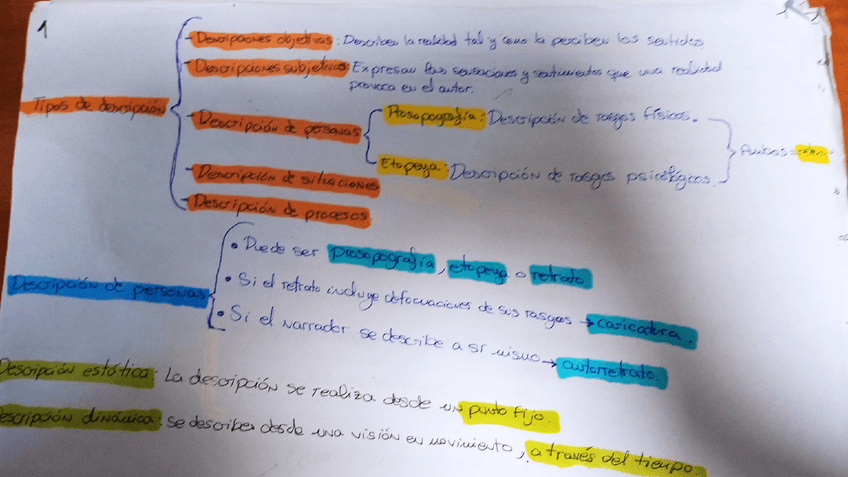 1
Tipos de descripción
- Descripciones objetivas: Describen la realidad tal y como la perciben los sentidos.
- Descripciones subjetivas: Expresan las sensaciones y sentimientos que una realidad
provoca en el autor.
- Descripción de personas
Prosopografía: Descripción de rasgos físicos.
Etopeya: Descripción de rasgos psicológicos.
Ambas =
- Descripción de situaciones
- Descripción de procesos
Descripción de personas
• Puede ser prosopografía, etopeya o retrato
• Si el retrato incluye deformaciones de sus rasgos → caricatura.
• Si el narrador se describe a sí mismo → autorretrato.
Descripción estática: La descripción se realiza desde un punto fijo.
Descripción dinámica: Se describe desde una visión en movimiento, a través del tiempo.